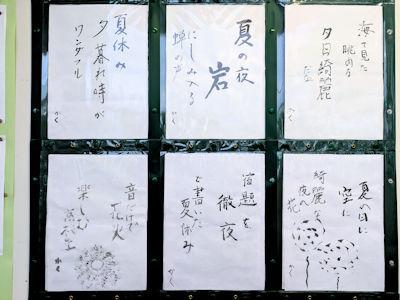 海で見た
眺める
夕日綺麗
夏の夜
岩
にしみ入る
蝉の声
夏休み
夕暮れ時が
ワンダフル
夏の日に
空に
綺麗な
夜の花
宿題を
徹夜
で書いた
夏休み
音だけで
花火
楽しむ